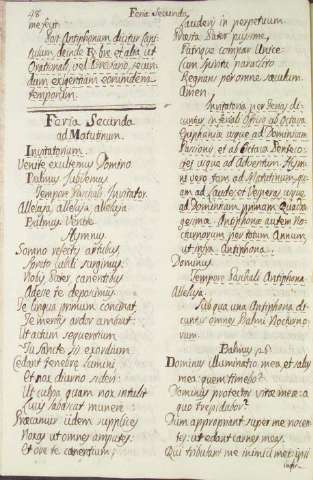 48
Feria Secunda
me fecit.
Post Antiphonam dicitur Capi-
tulum, deinde R. bre et alia, ut
Ordinarium, vel Breviario, secun-
dum exigentiam eorumdem
temporum.
Feria Secunda
ad Matutinum.
Invitatorium.
Venite exultemus Domino
Psalmus Jubilemus
Tempore Paschali Invitator.
Alleluja, alleluja, alleluja
Psalmus Venite
Hymnus
Somno refectis artubus
Spreto cubili surgimus
Nobis Pater canentibus
Adesse te deposcimus
Te lingua primum concinat
Te mentis ardor ambiat
Ut actuum sequentium
Tu Sancte sis exordium
Cedant tenebræ lumini
Et nox diurno sideri
Ut culpa quam nox intulit
Lucis labascat munere
Precamur iidem supplices
Noxas ut omnes amputes
Et ore te canentium
Lauderis in perpetuum
Præsta Pater piisime,
Patrique compar Unice:
Cum Spiritu paraclito
Regnans per omne sæculum
Amen.
Invitatoria per ferias di-
cuntur infraoct. Epiphaniæ usque ad Dominicam
Passionis et ab Octava Pentecos-
tes usque ad Adventum. Hymni
vero tam ad Matutinum quam
ad Laudes et Vesperas usque
ad Dominicam primam Quadra-
gesimæ. Antiphonæ autem Noc-
turnorum per totum Annum,
ut infra. Antiphona.
Dominus
Tempore Paschali Antiphona
Alleluja.
Sub qua una Antiphona di-
cuntur omnes Psalmi Nocturno-
rum.
Psalmus 26
Dominus illuminatio mea, et salus
mea quem timebo?
Dominus protector vitæ meæ: a
quo trepidabo?
Dum appropiant super me nocen-
tes: ut edant carnes meas.
Qui tribulant me inimici mei: ipsi
infir.